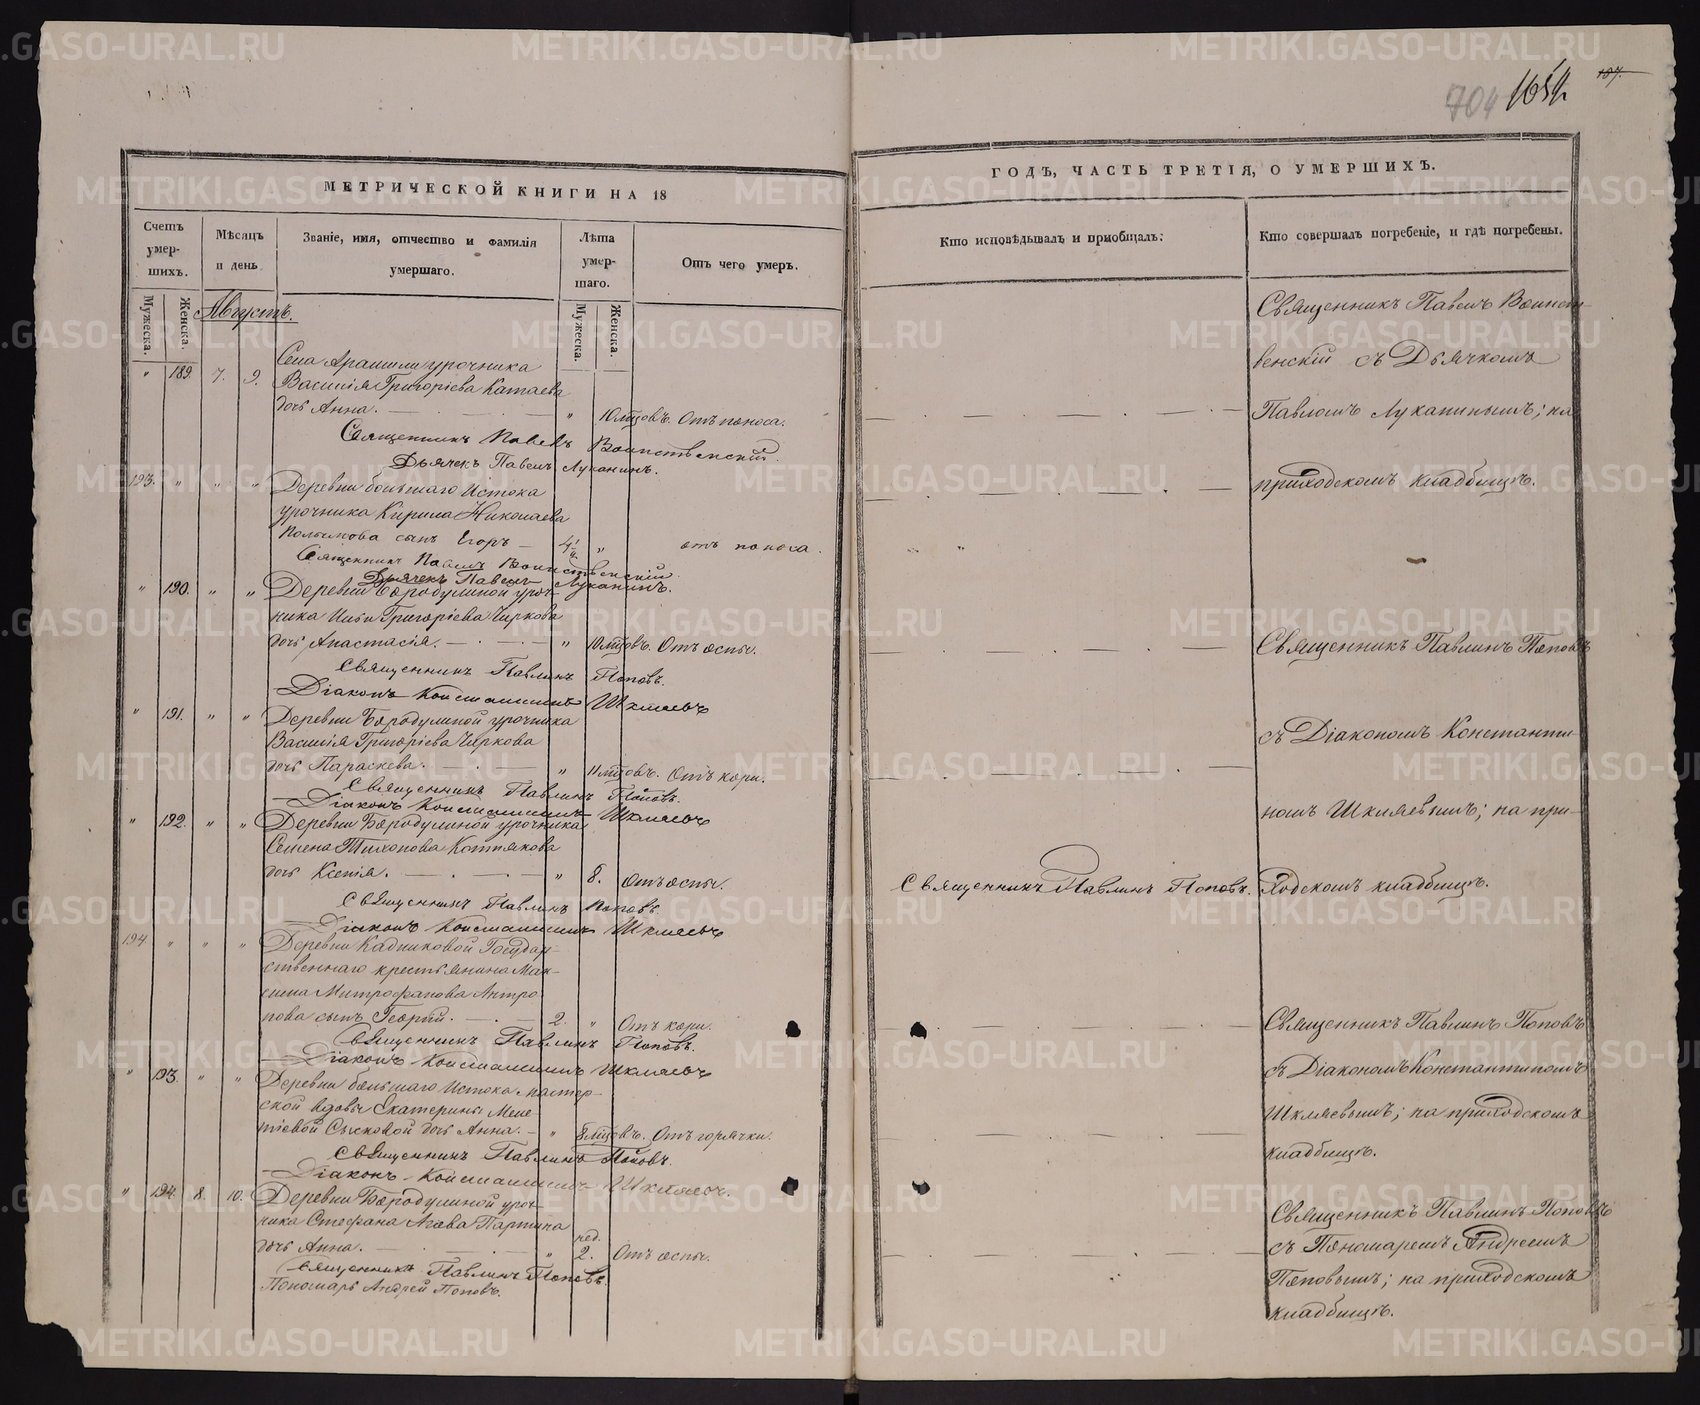 704 165 187.
МЕТРИЧЕСКОЙ КНИГИ НА 18
ГОДЪ, ЧАСТЬ ТРЕТІЯ, О УМЕРШИХЪ.
Счетъ умер-шихъ.
Мужеска.
Женска.
Мѣсяцъ и день
Званіе, имя, отчество и фамилія умершаго.
Лѣта умер-шаго.
Мужеска.
Женска.
Отъ чего умеръ.
Кто исповѣдывалъ и пріобщалъ:
Кто совершалъ погребеніе, и гдѣ погребены.
Августъ.
Села Арамили урочника
" 189. 7. 9. Василія Григоріева Катаева
дочь Анна. " 10 мцовъ. Отъ поноса.
Священникъ Павелъ Воинственскій
Дьячекъ Павелъ Луканинъ.
193. " " " Деревни большаго Истока
урочника Кирила Николаева
сынъ Егоръ " отъ поноса.
Священникъ Павелъ Воинственскій
Дьячекъ Павелъ Луканинъ.
" 190. " " Деревни Бородулиной уроч-
ника Ильи Григоріева Чиркова
дочь Анастасія. " 10 мцовъ. Отъ оспы.
Священникъ Павлинъ Поповъ.
Діаконъ Константинъ Шкляевъ
" 191. " " Деревни Бородулиной урочника
Василія Григоріева Чиркова
дочь Параскева. " 11 мцовъ. Отъ кори.
Священникъ Павлинъ Поповъ.
Діаконъ Константинъ Шкляевъ
" 192. " " Деревни Бородулиной урочника
Семена Тихонова Котнякова
дочь Ксенія. " 8. Отъ оспы.
Священникъ Павлинъ Поповъ.
Діаконъ Константинъ Шкляевъ
194. " " " Деревни Кадниковой Государ-
ственнаго крестьянина Мак-
сима Митрофанова Антро-
пова сынъ Георгій. 2. " Отъ кори.
Священникъ Павлинъ Поповъ.
Діаконъ Константинъ Шкляевъ
" 193. " " Деревни большаго Истока мастер-
ской вдовы Екатерины Меле-
тіевой Сысковой дочь Анна. " 8 мцовъ. Отъ горячки.
Священникъ Павлинъ Поповъ.
Діаконъ Константинъ Шкляевъ.
" 194. 8. 10. Деревни Бородулиной уроч-
ника Стефана Агава Партина
нед.
дочь Анна. " 2. Отъ оспы.
Священникъ Павлинъ Поповъ.
Пономарь Андрей Поповъ.
Священникъ Павлинъ Поповъ.
Священникъ Павелъ Воинст-
венскій съ Дьячкомъ
Павломъ Луканинымъ; на
приходскомъ кладбищѣ.
Священникъ Павлинъ Поповъ
съ Діакономъ Константи-
номъ Шкляевымъ; на при-
ходскомъ кладбищѣ.
Священникъ Павлинъ Поповъ
съ Діакономъ Константиномъ
Шкляевымъ; на приходскомъ
кладбищѣ.
Священникъ Павлинъ Поповъ
съ Пономаремъ Андреемъ
Поповымъ; на приходскомъ
кладбищѣ.
METRIKI.GASO-URAL.RU